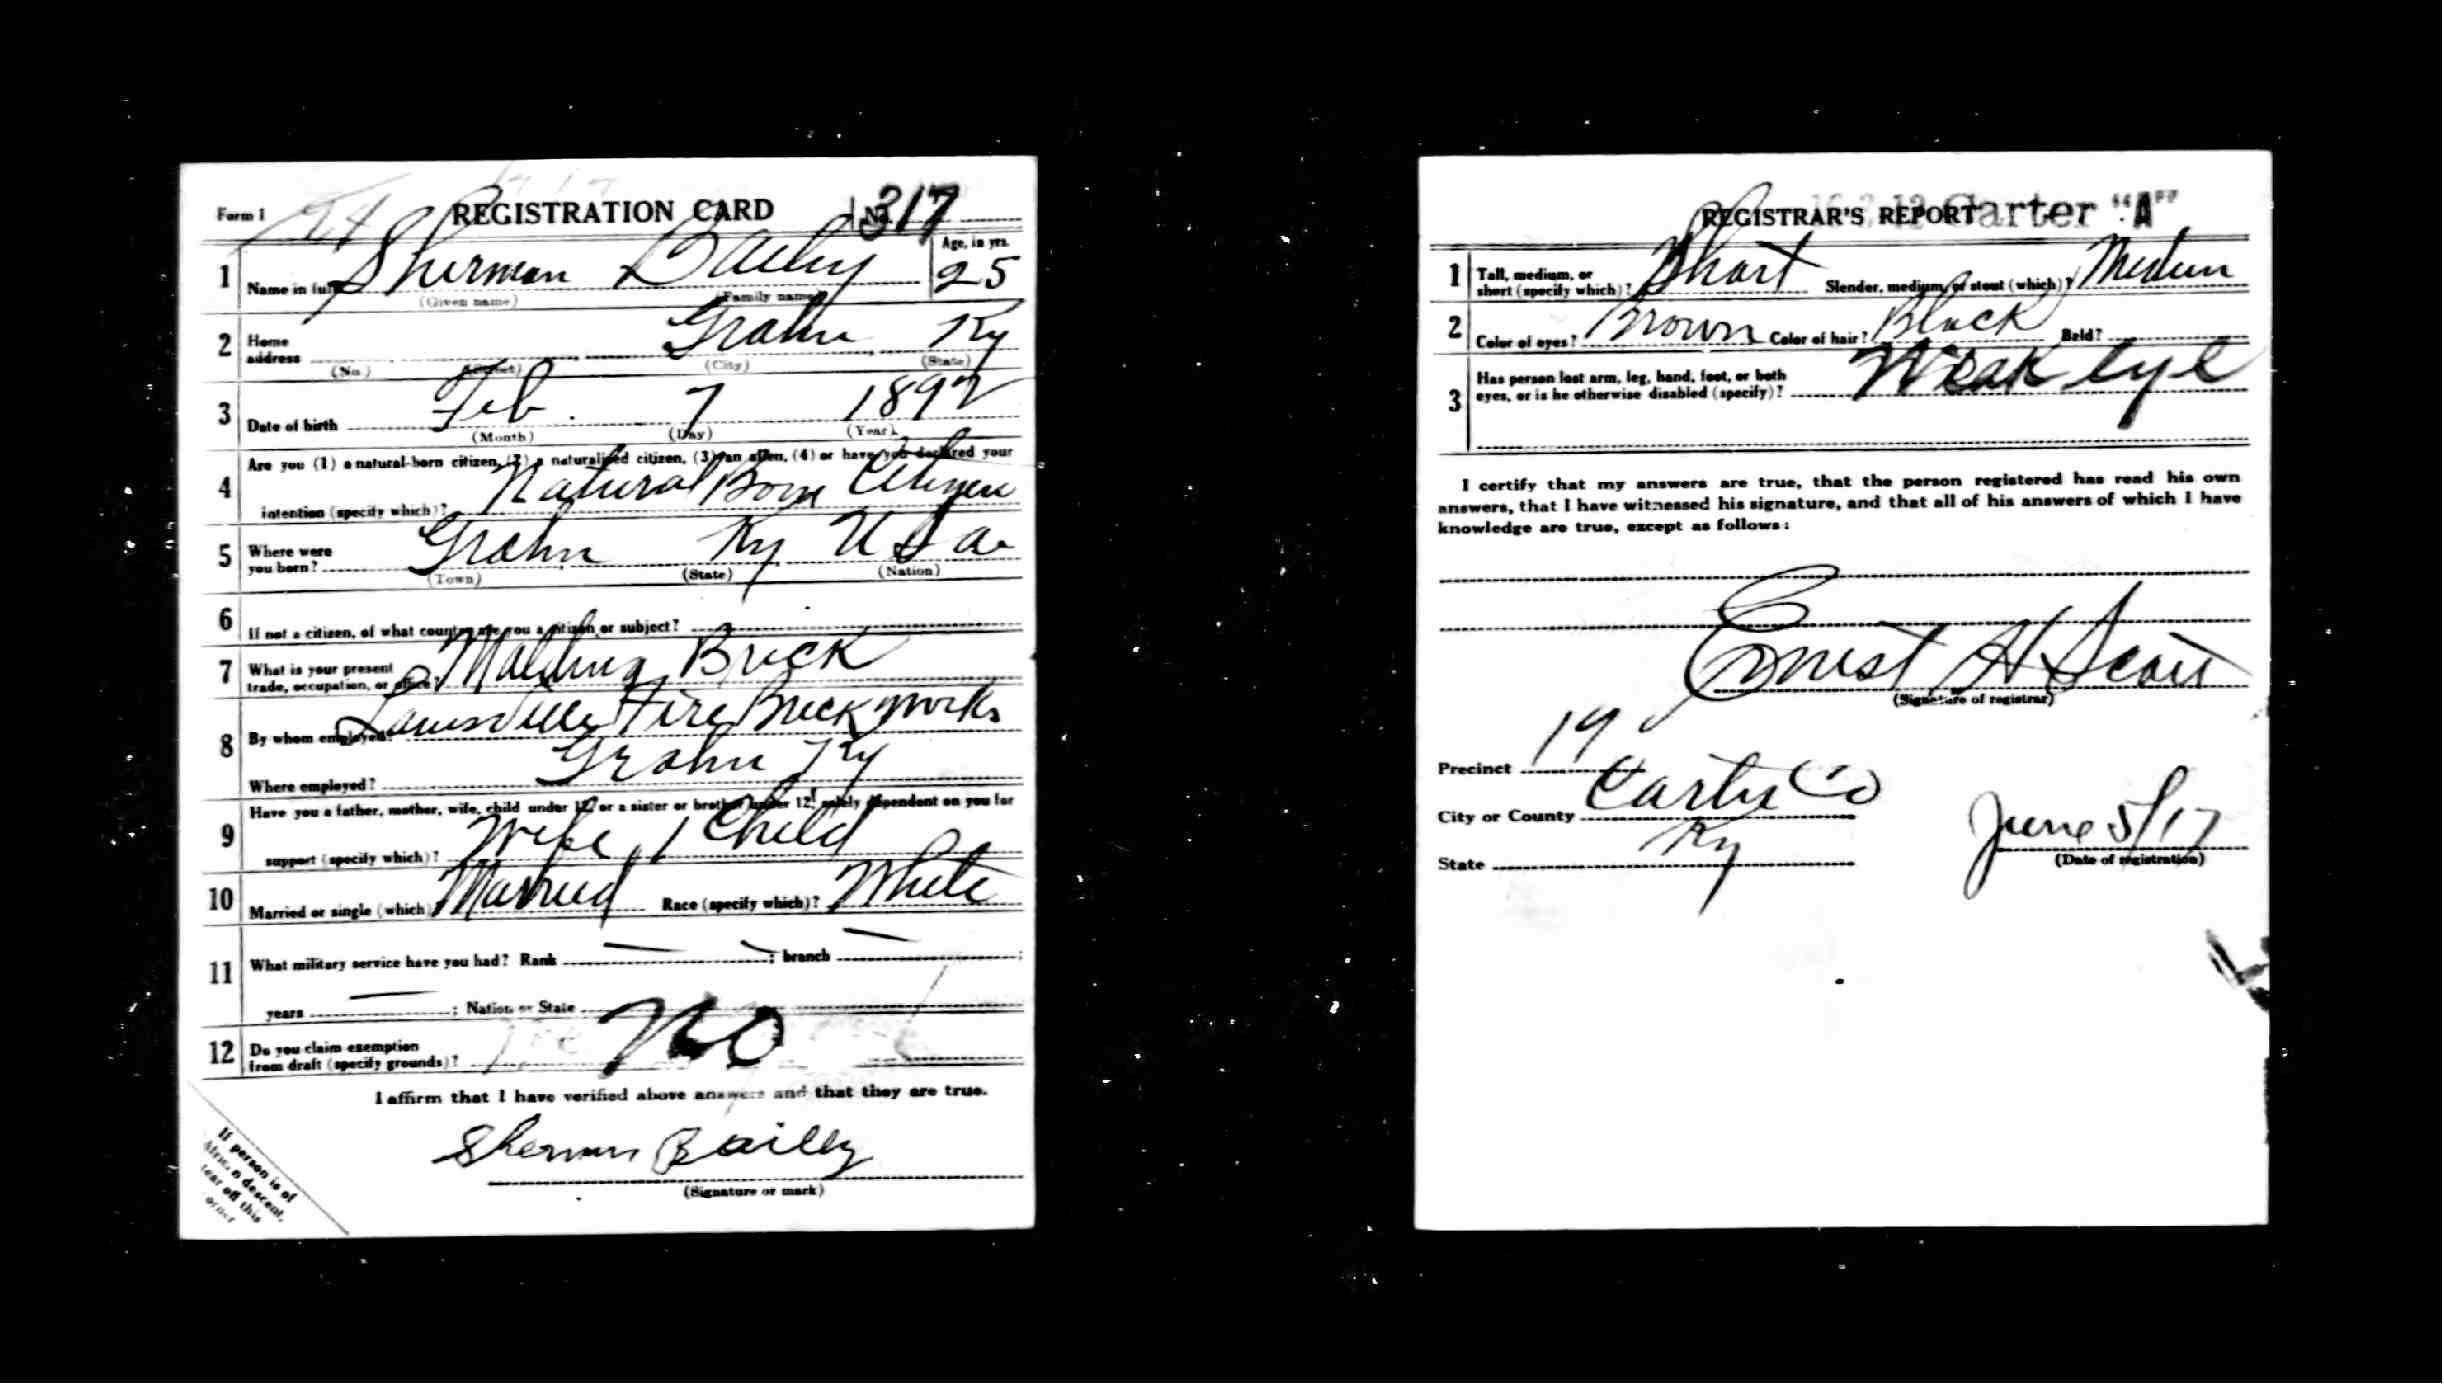 Form 1 REGISTRATION CARD No. 317
1 Name in full Sherman Bailey Age, in yrs. 25
(Given name) (Family name)
2 Home address Grahn Ky
(No.) (Street) (City) (State)
3 Date of birth Feb. 7 1892
(Month) (Day) (Year)
4 Are you (1) a natural-born citizen, (2) a naturalized citizen, (3) an alien, (4) or have you declared your
intention (specify which)? Natural Born Citizen
5 Where were you born? Grahn Ky U S a
(Town) (State) (Nation)
6 If not a citizen, of what country are you a citizen or subject?
7 What is your present trade, occupation, or office? Molding Brick
8 By whom employed? Louisville Fire Brick Works
Where employed? Grahn Ky
9 Have you a father, mother, wife, child under 12, or a sister or brother under 12, solely dependent on you for
support (specify which)? Wife, 1 Child
10 Married or single (which)? Married Race (specify which)? White
11 What military service have you had? Rank — ; branch — ;
years — ; Nation or State
12 Do you claim exemption from draft (specify grounds)? No
I affirm that I have verified above answers and that they are true.
Sherman Bailey
(Signature or mark)
If person is of
African descent,
tear off this
corner
REGISTRAR'S REPORT Carter "A"
1 Tall, medium, or short (specify which)? Short Slender, medium, or stout (which)? Medium
2 Color of eyes? Brown Color of hair? Black Bald?
3 Has person lost arm, leg, hand, foot, or both
eyes, or is he otherwise disabled (specify)? Weak eye
I certify that my answers are true, that the person registered has read his own
answers, that I have witnessed his signature, and that all of his answers of which I have
knowledge are true, except as follows:
Ernest H Scott
(Signature of registrar)
Precinct 19
City or County Carter Co
State Ky
June 5/17
(Date of registration)